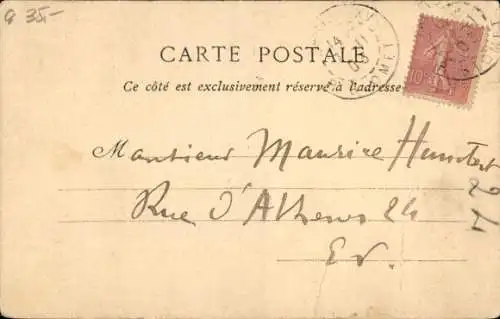 G 35.-
CARTE POSTALE
Ce côté est exclusivement réservé à l'adresse
10
Monsieur Maurice
Rue d'Athènes 24
EV.